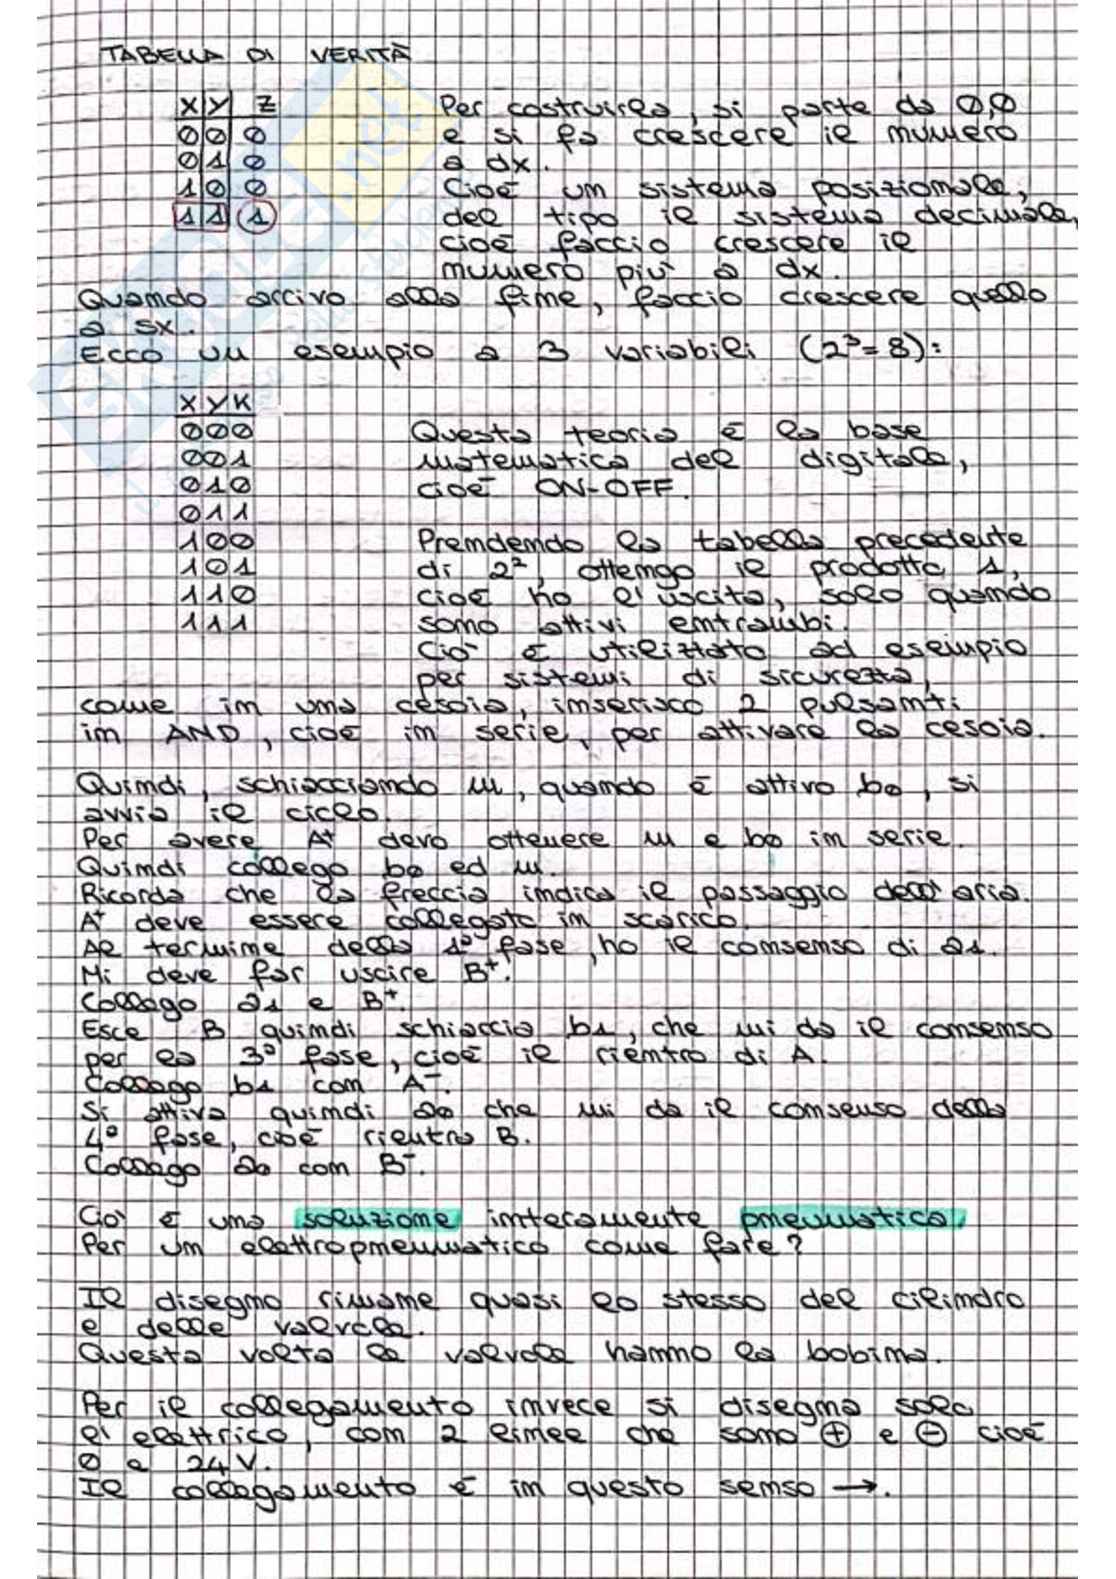 TABELLA DI VERITÀ
X Y Z
0 0 0
0 1 0
1 0 0
1 1 1
Per costruirla, si parte da 0,0
e si fa crescere il numero
a dx.
Cioè un sistema posizionale,
del tipo il sistema decimale,
cioè faccio crescere il
numero più a dx.
Quando arrivo alla fine, faccio crescere quello
a sx.
Ecco un esempio a 3 variabili (2³=8):
X Y K
0 0 0
0 0 1
0 1 0
0 1 1
1 0 0
1 0 1
1 1 0
1 1 1
Questa teoria è la base
matematica del digitale,
cioè ON-OFF.
Prendendo la tabella precedente
di 2², ottengo il prodotto 1,
cioè ho l'uscita, solo quando
sono attivi entrambi.
Ciò è utilizzato ad esempio
per sistemi di sicurezza,
come in una cesoia, inserisco 2 pulsanti
in AND, cioè in serie, per attivare la cesoia.
Quindi, schiacciando m, quando è attivo b0, si
avvia il ciclo.
Per avere A⁺ devo ottenere m e b0 in serie.
Quindi collego b0 ed m.
Ricorda che la freccia indica il passaggio dell'aria.
A⁺ deve essere collegato in scarico.
Al termine della 1ª fase, ho il consenso di a1.
Mi deve far uscire B⁺.
Collego a1 e B⁺.
Esce B quindi schiaccia b1, che mi da il consenso
per la 3ª fase, cioè il rientro di A.
Collego b1 con A⁻.
Si attiva quindi a0 che mi da il consenso della
4ª fase, cioè rientra B.
Collego a0 con B⁻.
Ciò è una soluzione interamente pneumatica.
Per un elettropneumatico come fare?
Il disegno rimane quasi lo stesso del cilindro
e delle valvole.
Questa volta le valvole hanno la bobina.
Per il collegamento invece si disegna solo
l'elettrico, con 2 linee che sono ⊕ e ⊖ cioè
0 e 24V.
Il collegamento è in questo senso →.